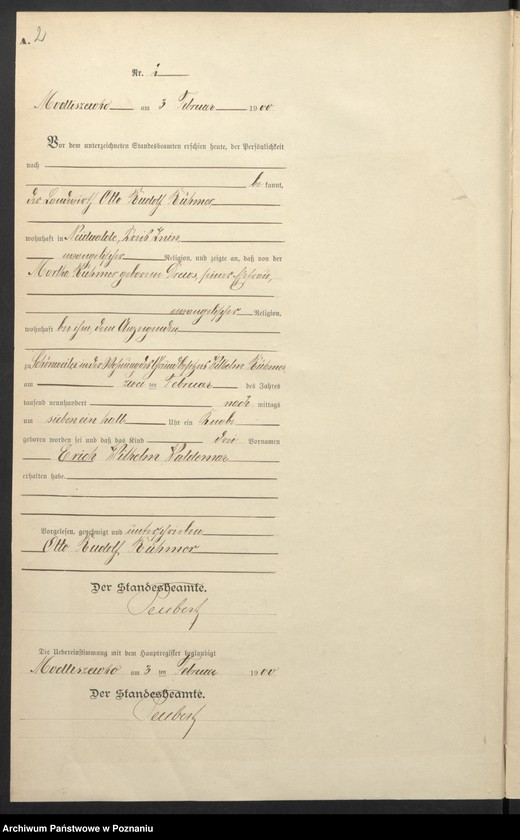 A. 2
Nr. 1
Modliszewko am 3 Februar 1900
Vor dem unterzeichneten Standesbeamten erschien heute, der Persönlichkeit
nach
be kannt,
der Landwirth Otto Rudolf Kühmer
wohnhaft in Kreis Znin
evangelischer Religion, und zeigte an, daß von der
Martha Kühmer geborene Drews, seiner Ehefrau,
evangelischer Religion,
wohnhaft bei ihm, dem Anzeigenden
zu in der Wohnung des Wilhelm Kühmer
am zwei ten Februar des Jahres
tausend neunhundert nach mittags
um sieben ein halb Uhr ein Knabe
geboren worden sei und daß das Kind drei Vornamen
Erich Wilhelm Waldemar
erhalten habe.
Vorgelesen, genehmigt und unterschrieben
Otto Rudolf Kühmer
Der Standesbeamte.
Seubert
Die Uebereinstimmung mit dem Hauptregister beglaubigt
Modliszewko am 3 ten Februar 1900
Der Standesbeamte.
Seubert
Archiwum Państwowe w Poznaniu